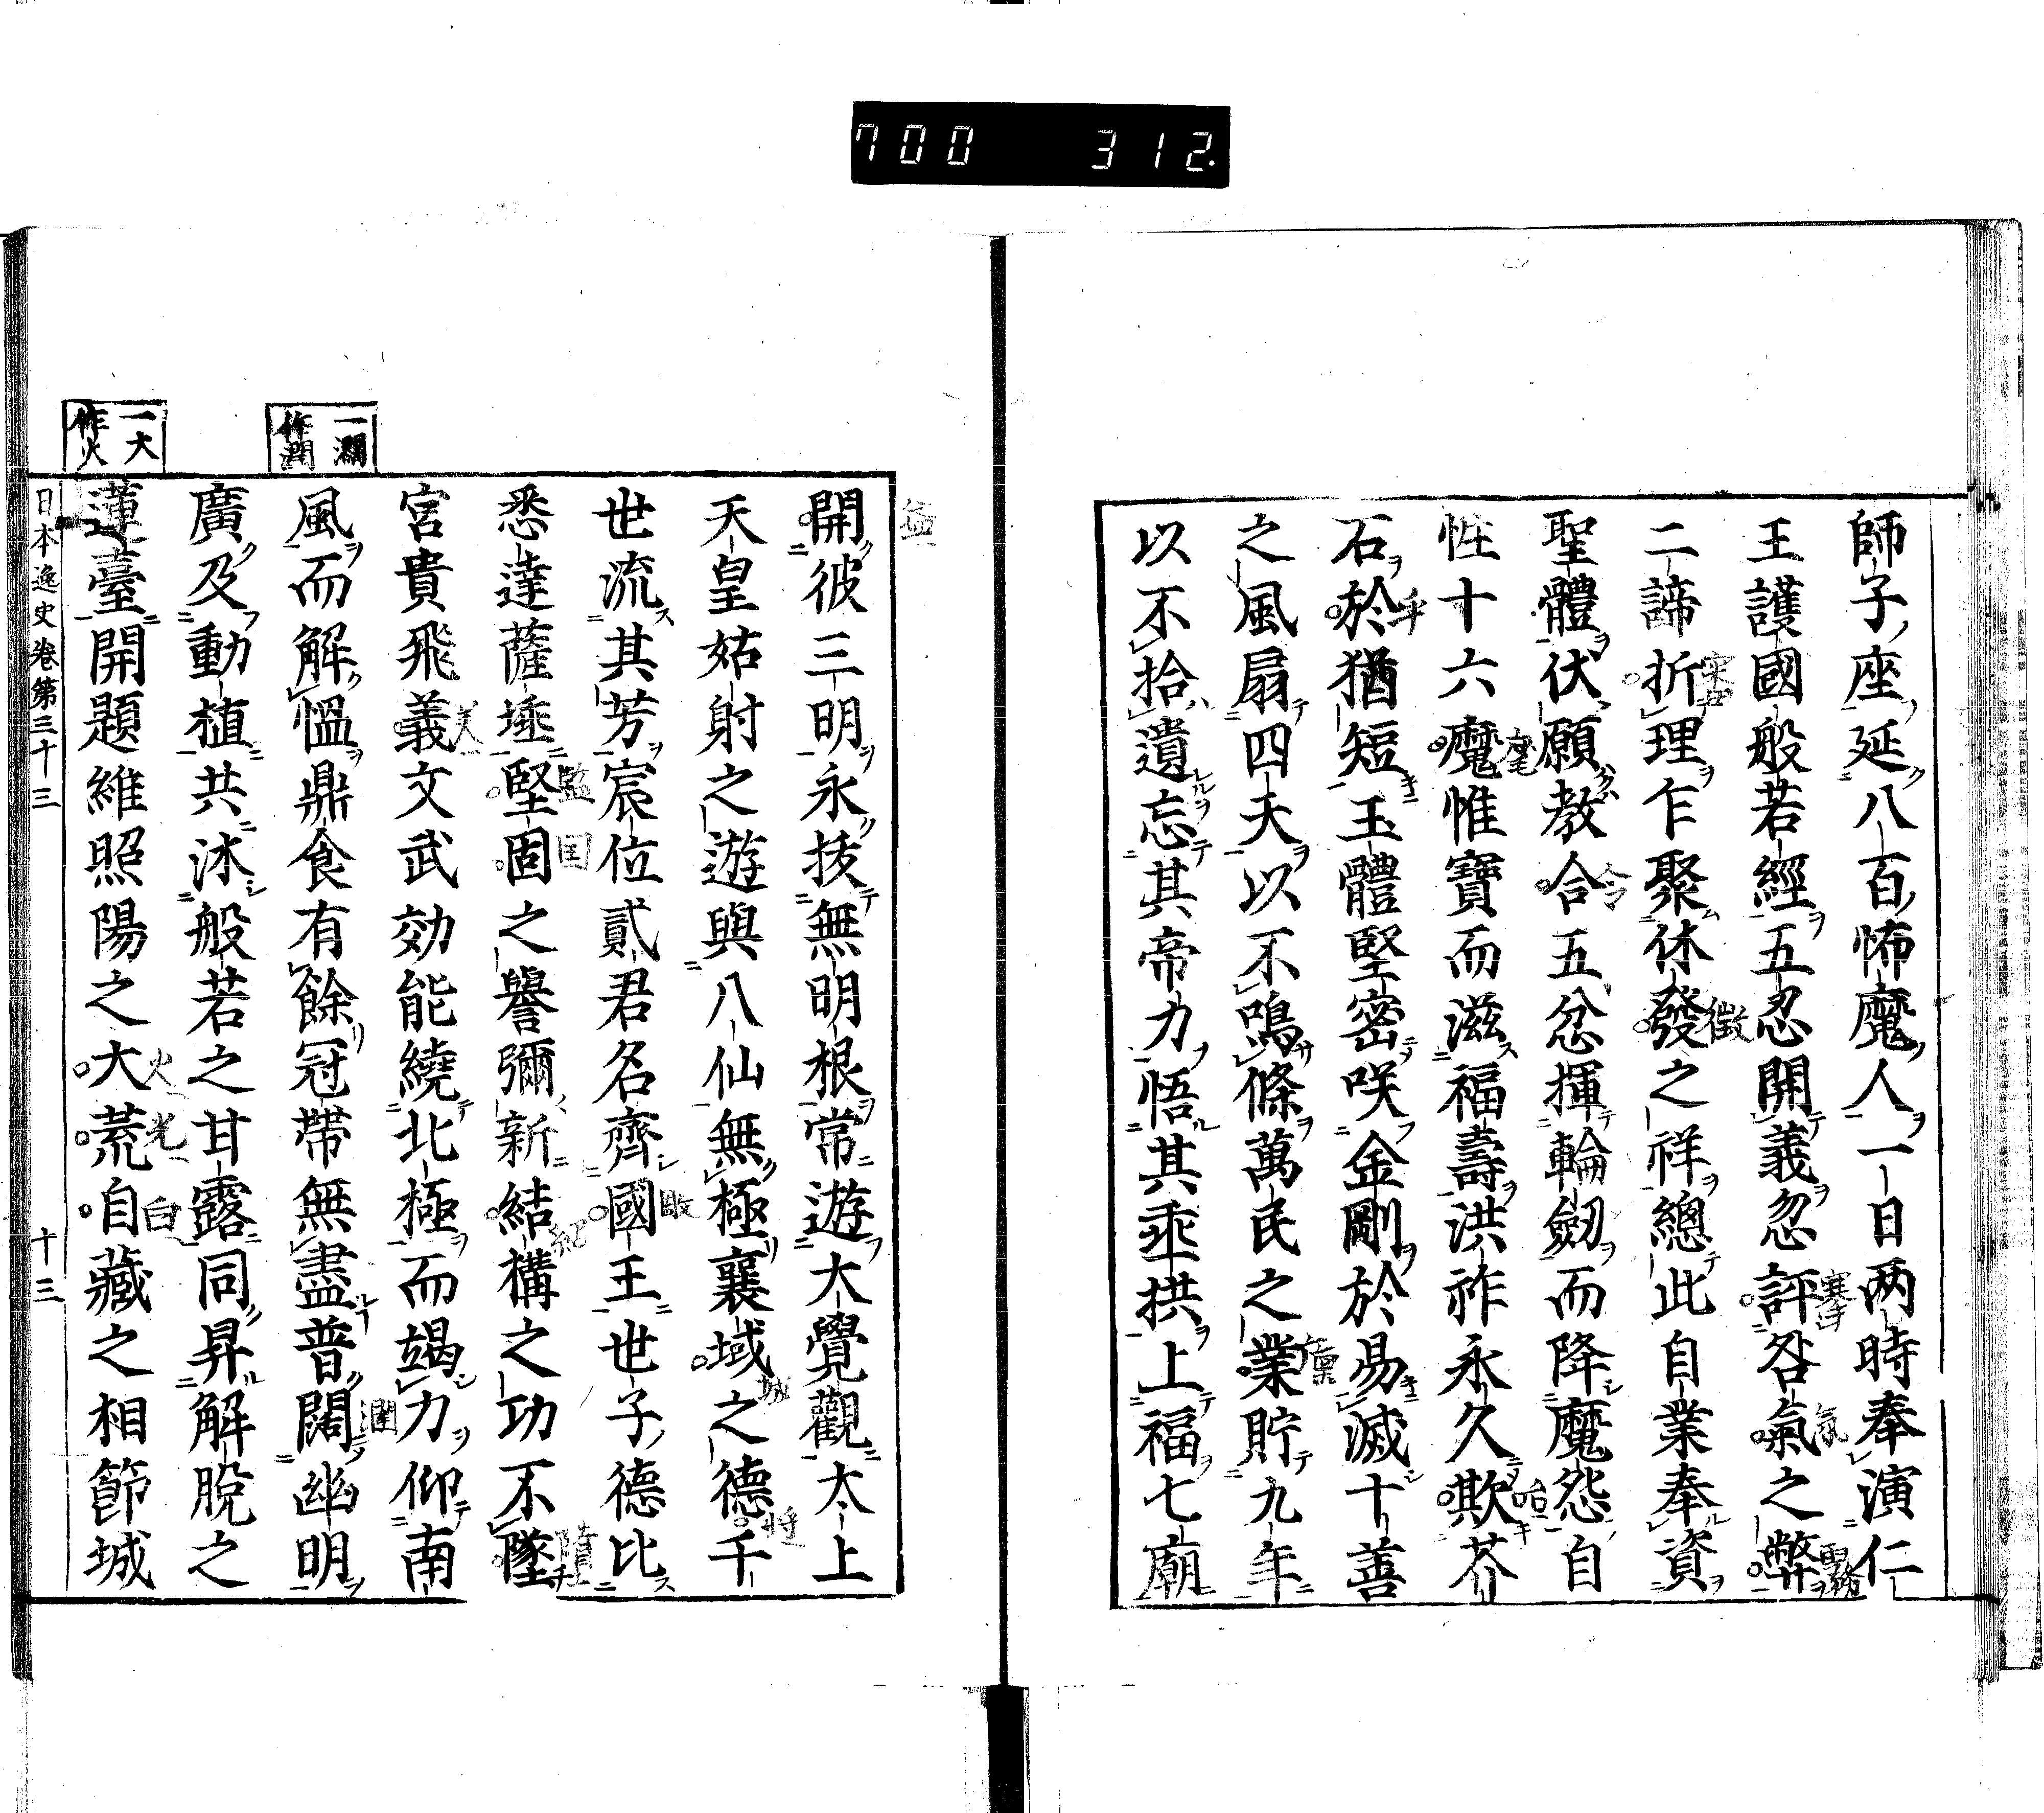 700 312.
師子座延八百怖魔人一日两時奉演仁
王護國般若經五忍開義忽評咎氣之弊
二諦折理乍聚休發之祥總此自業奉資
聖體伏願教合五忿揮輪劒而降魔怨自
性十六魔惟寶而滋福壽洪祚永久欺芥
石於猶短玉體堅密咲金剛於易滅十善
之風扇四天以不鳴條萬民之業貯九年
以不拾遺忘其帝力悟其垂拱上福七廟
開彼三明永拔無明根常遊大覺觀太上
天皇姑射之遊與八仙無極襄域之德千
世流其芳宸位貳君名齊國王世子德比
悉達薩埵堅固之譽彌新結構之功不墜
宮貴飛義文武効能繞北極而竭力仰南
風而解慍鼎食有餘冠帶無盡普闊幽明
廣及動植共沐般若之甘露同昇解脫之
蓮臺開題維照陽之大荒自藏之相節城
一濶作潤
一大作火
日本逸史卷第三十三 十三